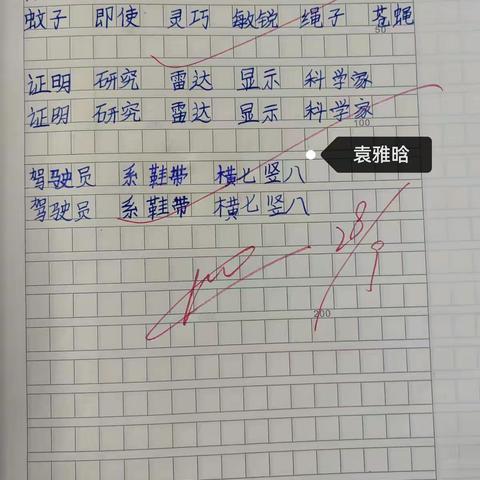 蚊子 即使 灵巧 敏锐 绳子 苍蝇
50
证明 研究 雷达 显示 科学家
证明 研究 雷达 显示 科学家
100
袁雅晗
驾驶员 系鞋带 横七竖八
驾驶员 系鞋带 横七竖八
28/9
200